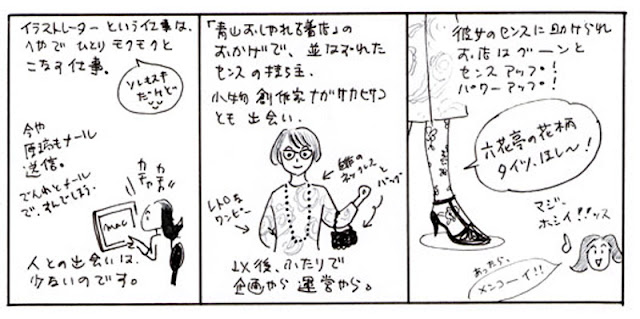 イラストレーターという仕事は、
へやでひとりモクモクと
こなす仕事。
ソレもスキ
だけど
今や
原稿もメール
送信。
でんわとメール
で、すんでしまう。
カチ
カチ
カチ
mac
人との出会いは、
少ないのです。
「青山おしゃれ古着店」の
おかげで、並はずれた
センスの持ち主、
小物創作家ナガサカヒサコ
とも出会い、
レトロな
ワンピー
のネックレス
と
バッグ
以後、ふたりで
企画やら運営やら。
彼女のセンスに助けられ
お店はグーンと
センスアップ!
パワーアップ!
六花亭の花柄
タイツ、ほし〜!
マジ、
ホシイ!!ッス
あったら、
メンコーイ!!